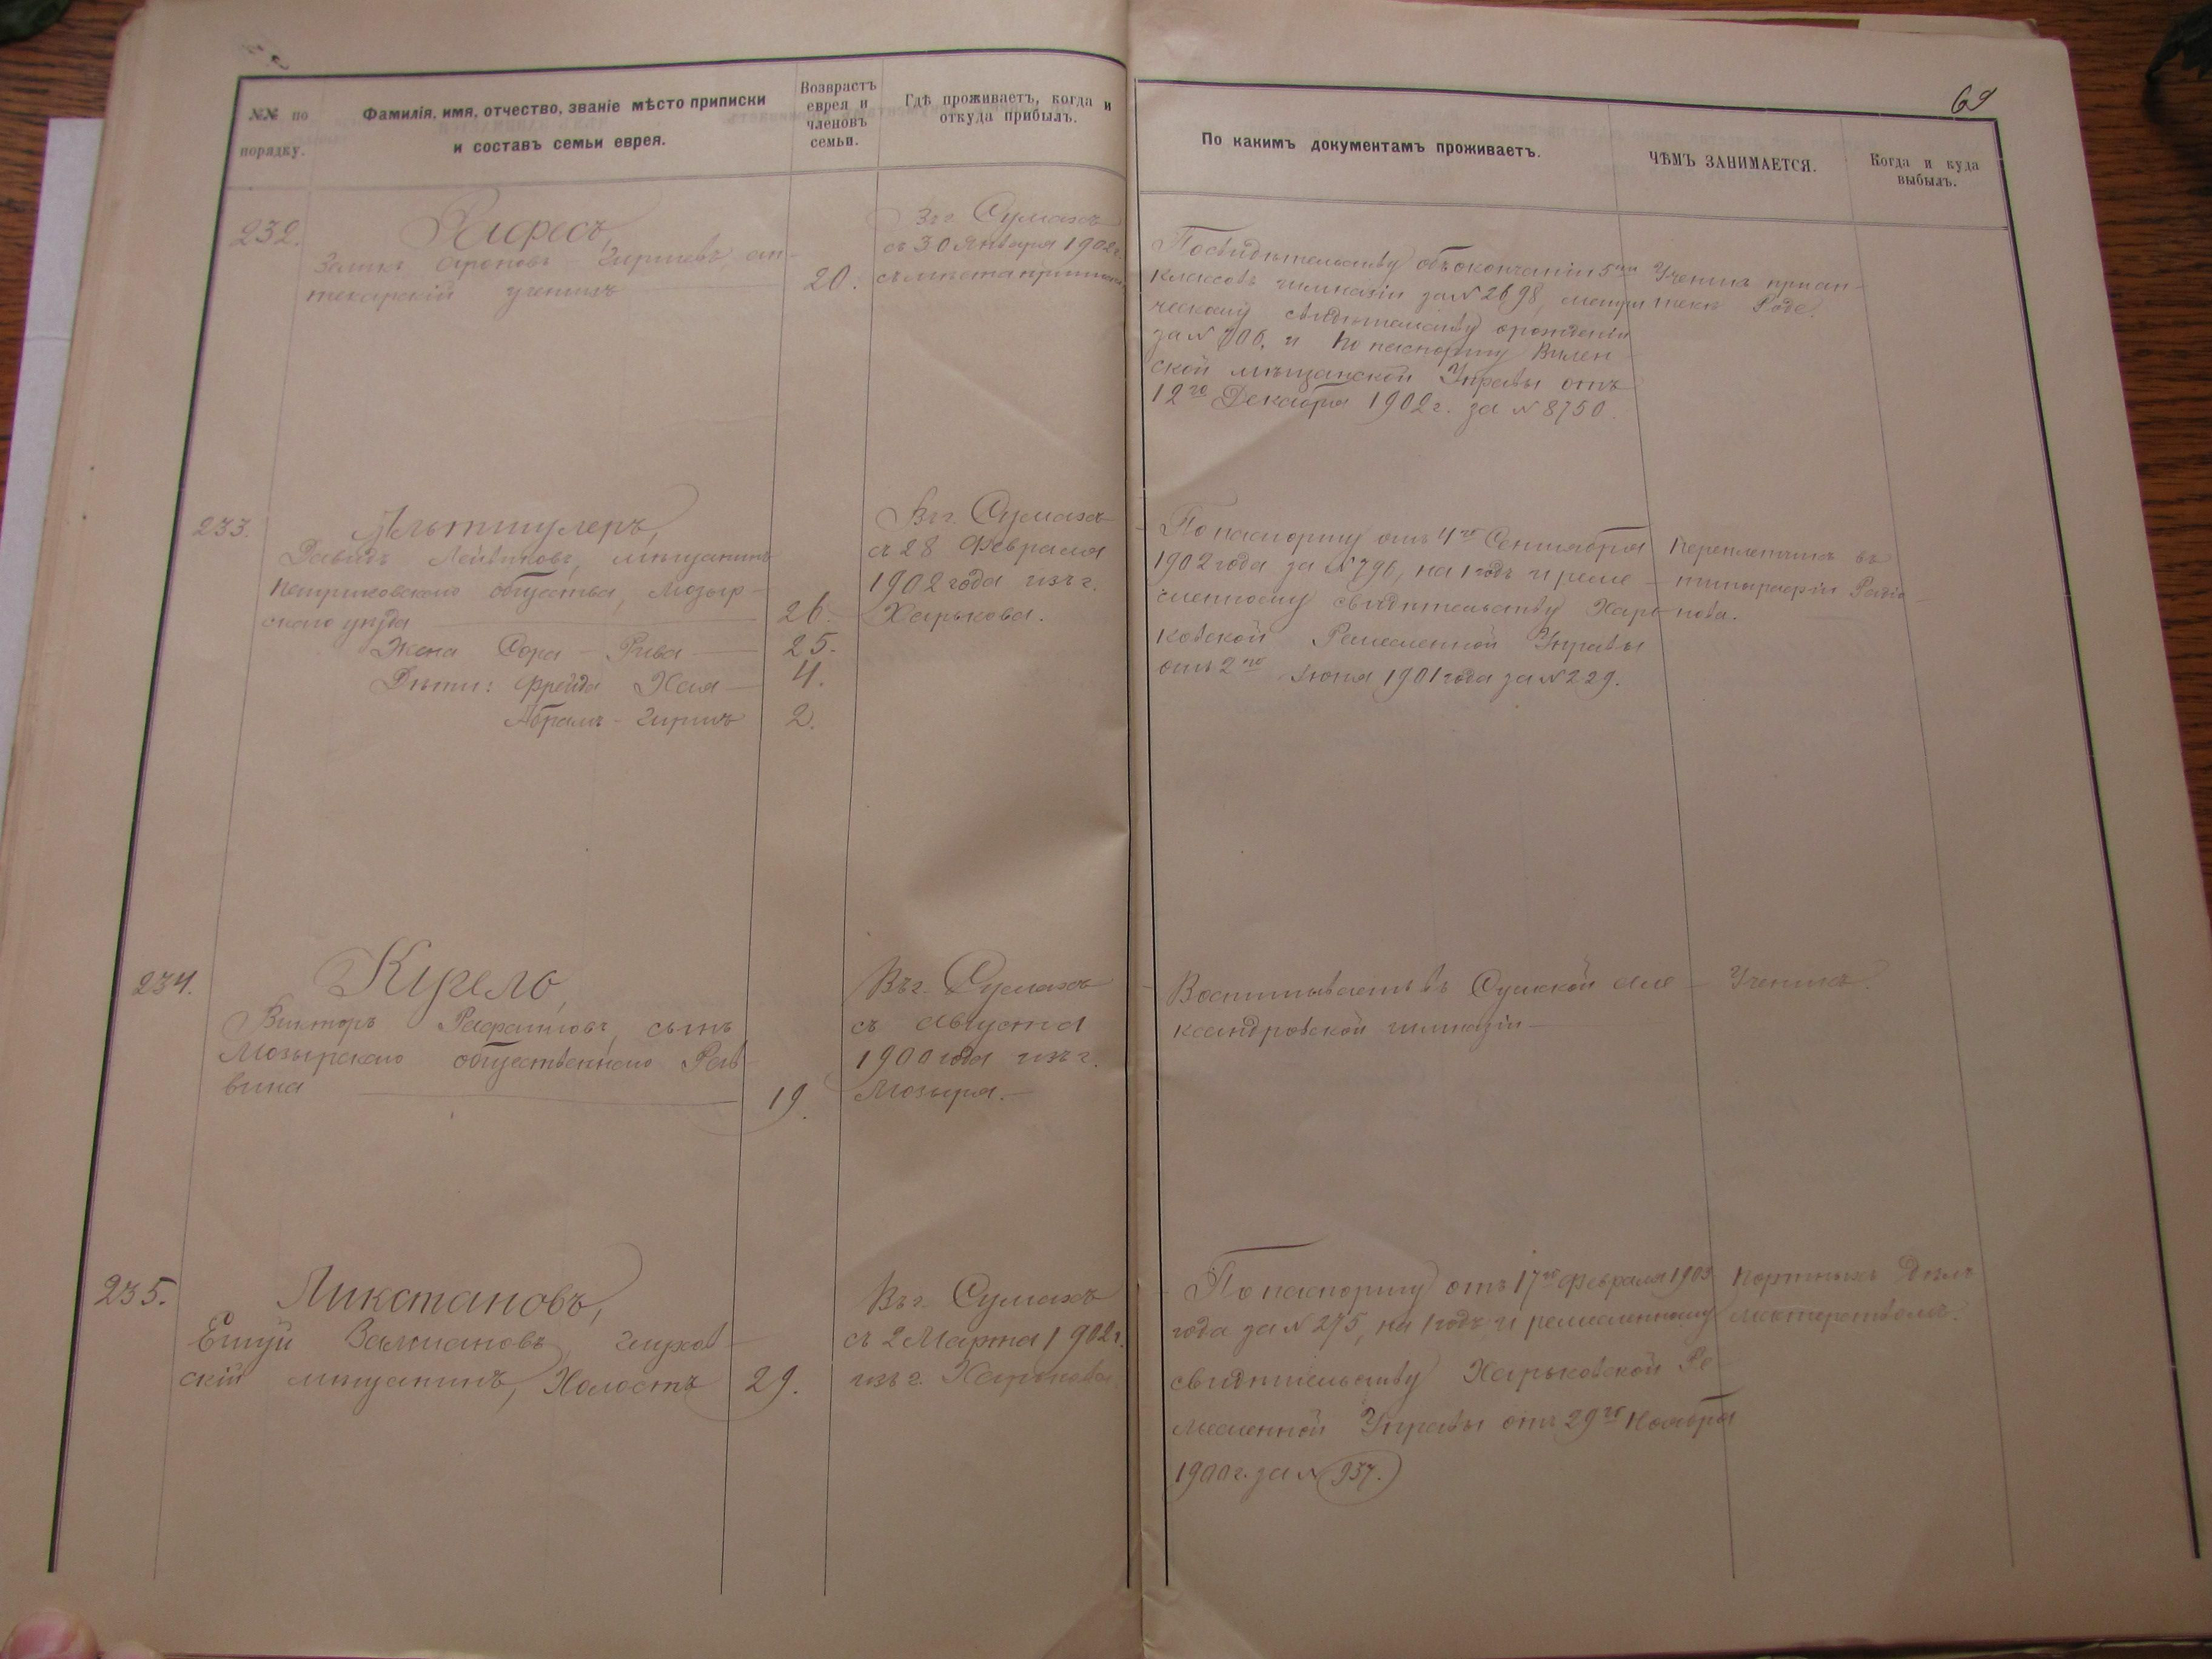 69
№№ по порядку.
Фамилія, имя, отчество, званіе мѣсто приписки
и составъ семьи еврея.
Возврастъ
еврея и
членовъ
семьи.
Гдѣ проживаетъ, когда и
откуда прибылъ.
По какимъ документамъ проживаетъ.
ЧѢМЪ ЗАНИМАЕТСЯ.
Когда и куда
выбылъ.
232.
Рафесъ,
Ароновъ - Гиршевъ, ап-
текарскій ученикъ
20.
Въ г. Сумахъ
съ 30 Января 1902 г.
съ мѣста приписки
По свидѣтельству объ окончаніи 5ти
классовъ гимназіи за № 2698, метри
ческому свидѣтельству о рожденіи
за № 706, и по паспорту Вилен
ской мѣщанской Управы отъ
12го Декабря 1902 г. за № 8750.
Ученикъ при ап-
текѣ Роде.
233.
Альтшулеръ,
Давидъ Лейвиковъ, мѣщанинъ
Петриковскаго общества, Мозыр-
скаго уѣзда
26.
Жена Сора - Рива
25.
Дѣти: Фрейда Хая
4.
Абрамъ - Гиршъ
2.
Въ г. Сумахъ
съ 28 Февраля
1902 года изъ г.
Харькова.
По паспорту отъ 4го Сентября
1902 года за № 796, на 1 годъ и реме-
сленному свидѣтельству Харь-
ковской Ремесленной Управы
отъ 2го Іюня 1901 года за № 229.
Переплетчикъ въ
типографіи
234.
Курело,
Викторъ Рафаиловъ, сынъ
Мозырскаго общественнаго Рав
вина
19.
Въ г. Сумахъ
съ Августа
1900 года изъ г.
Мозыря.
Воспитывается въ Сумской Але-
ксандровской гимназіи
Ученикъ.
235.
Ликстановъ,
Залмановъ, Глухов-
скій мѣщанинъ, Холостъ
29.
Въ г. Сумахъ
съ 2 Марта 1902 г.
изъ г. Харькова
По паспорту отъ 17го Февраля 1903
года за № 275, на 1 годъ и ремесленному
свидѣтельству Харьковской Ре-
месленной Управы отъ 29го Ноября
1900 г. за № 937.
Портныхъ дѣлъ
мастерствомъ.